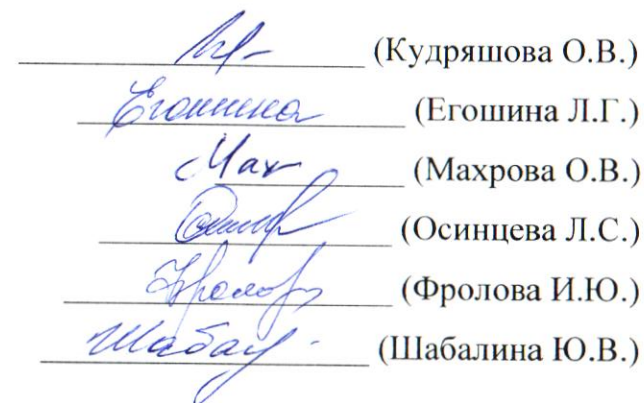 (Кудряшова О.В.)
Егошина (Егошина Л.Г.)
Мах (Махрова О.В.)
(Осинцева Л.С.)
(Фролова И.Ю.)
(Шабалина Ю.В.)